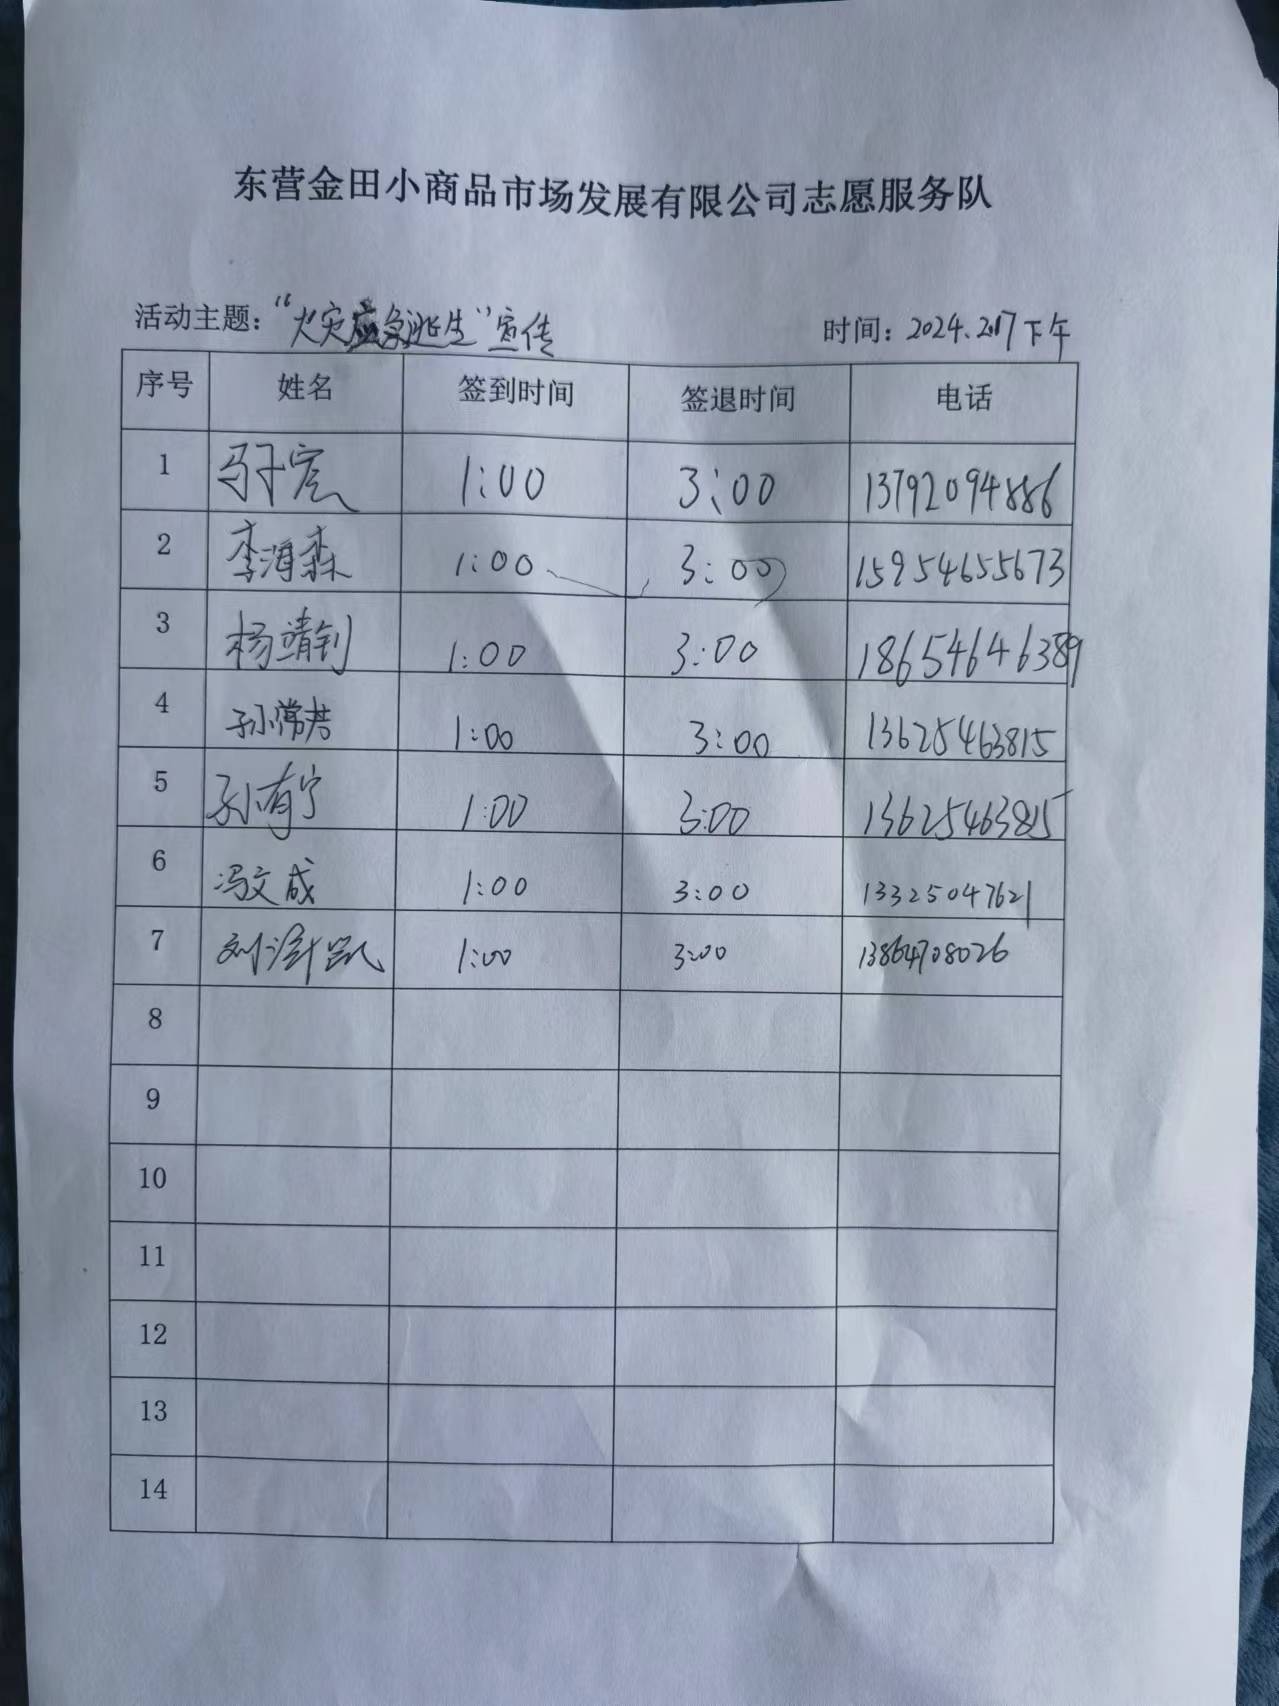 东营金田小商品市场发展有限公司志愿服务队
活动主题：“火灾应急逃生”宣传 时间：2024.2.17下午
序号 姓名 签到时间 签退时间 电话
1 马子宸 1:00 3:00 13792094886
2 李海森 1:00 3:00 15954655673
3 杨靖钊 1:00 3:00 18654646389
4 孙常芳 1:00 3:00 13625463815
5 孙有宁 1:00 3:00 13625463815
6 冯文成 1:00 3:00 13325047621
7 刘泽凯 1:00 3:00 13864708026
8
9
10
11
12
13
14